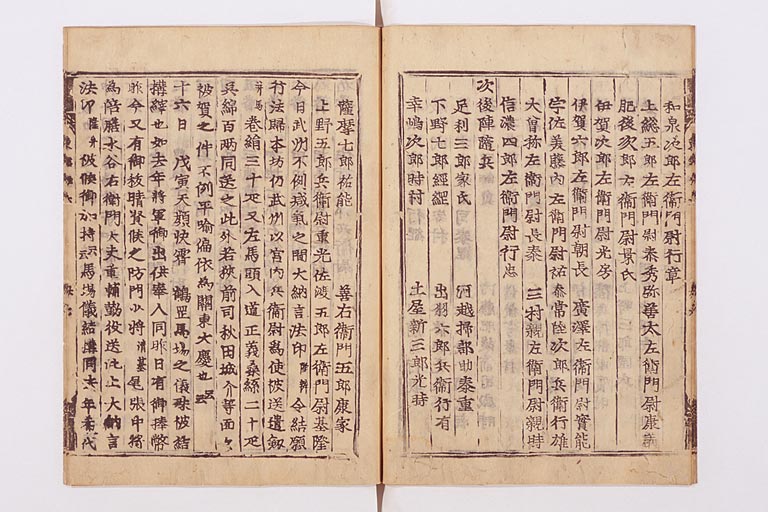 和泉次郎左衛門尉行章
上総五郎左衛門尉泰秀弥善太左衛門尉康義
肥後次郎左衛門尉景氏
伊賀次郎左衛門尉光房
伊賀六郎左衛門尉朝長 廣澤左衛門尉實能
宇佐義藤内左衛門尉祐泰常陸次郎兵衛行雄
大曽祢左衛門尉長泰 三村親左衛門尉親時
信濃四郎左衛門尉行忠
次後陣随兵
足利三郎家氏 河越掃部助泰重
下野七郎経綱 出羽六郎兵衛行有
幸嶋次郎時村 土屋新三郎光時
薩摩七郎祐能 善右衛門五郎康家
上野五郎兵衛尉重光佐渡五郎左衛門尉基隆
今日武州不例減氣之間大納言法印 令結願
行法歸本坊仍武州以宮内兵衛尉為使被送遣釼
巻絹三十疋又左馬頭入道正義桑絲二十疋
呉綿百両同送之此外若狭前司秋田城介等面々
被賀之件不例平喩偏依為關東大慶也云云
十六日 戊寅天顔快霽 鶴罡馬場之儀殊被結
構縡也如去年将軍御出供奉人同昨日有御捧幣
昨今又有御
為陪膳水谷右衛門大夫重輔勤役送此上大納言
法印隆弁 候御加持云云馬場儀結構同去年